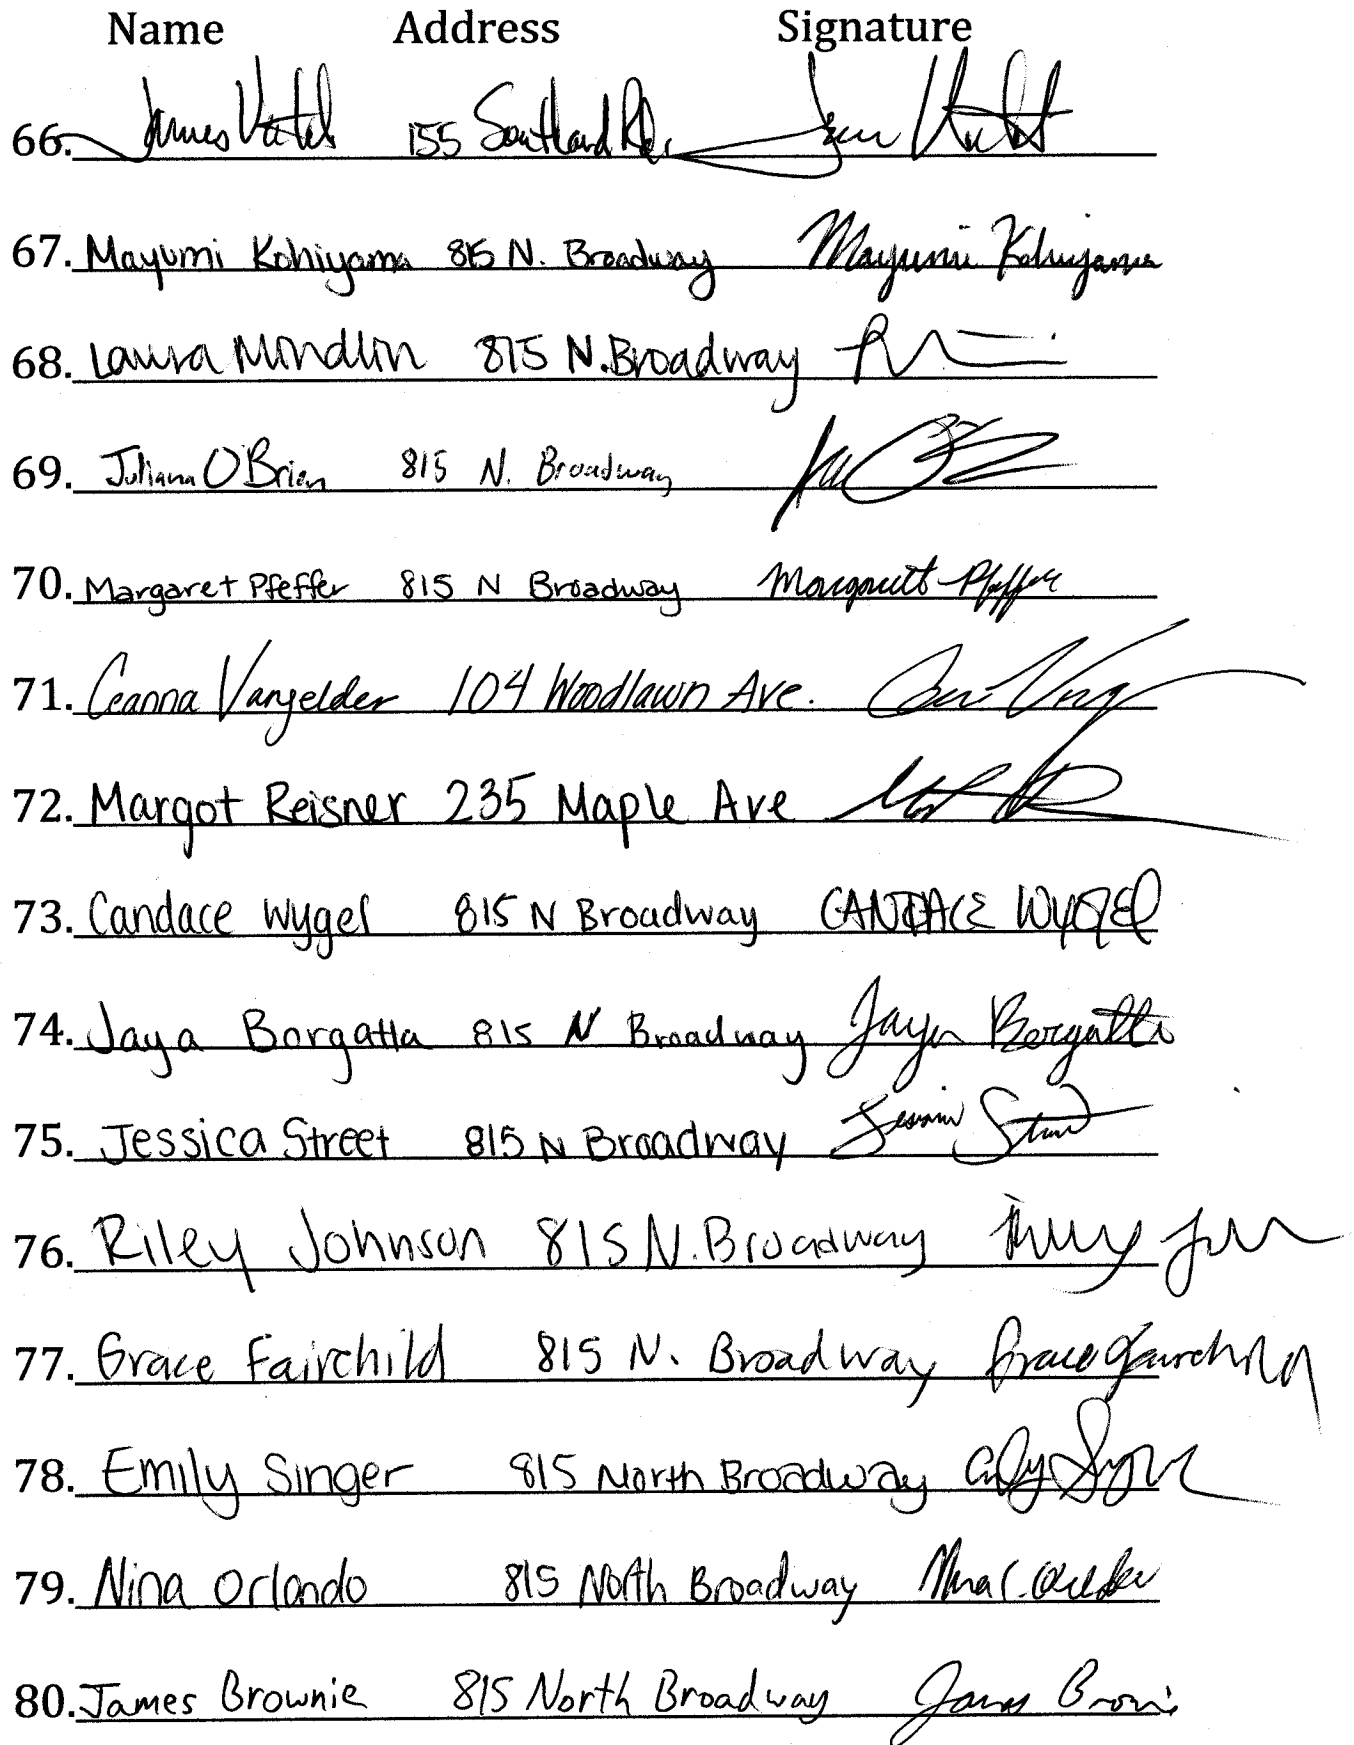 Name Address Signature
66. James 155 Southland
67. Mayumi Kohiyama 815 N. Broadway Mayumi Kohiyama
68. Laura Mindlin 815 N. Broadway
69. Juliana O'Brien 815 N. Broadway
70. Margaret Pfeffer 815 N Broadway Margarett Pfeffer
71. Ceanna Vangelder 104 Woodlawn Ave.
72. Margot Reisner 235 Maple Ave
73. Candace Wygel 815 N Broadway CANDACE WYGEL
74. Jaya Borgatta 815 N Broadway Jaya Borgatta
75. Jessica Street 815 N Broadway
76. Riley Johnson 815 N. Broadway
77. Grace Fairchild 815 N. Broadway Grace Fairchild
78. Emily Singer 815 North Broadway
79. Nina Orlando 815 North Broadway
80. James Brownie 815 North Broadway James